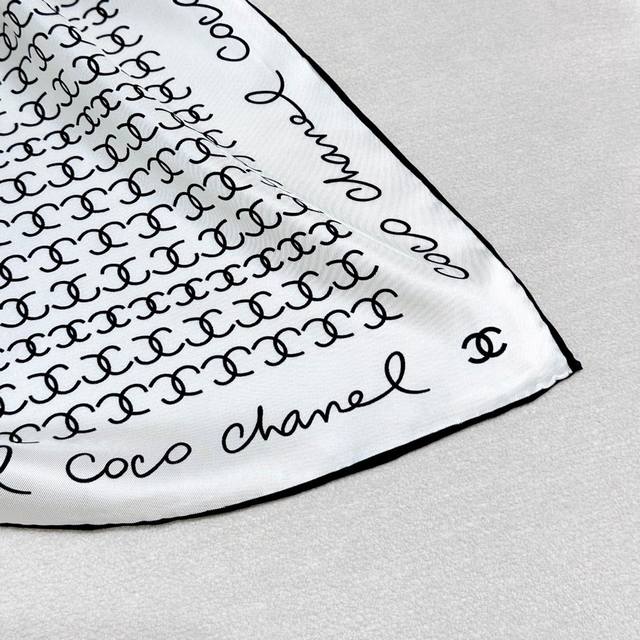 coco
coco chanel
coco chanel